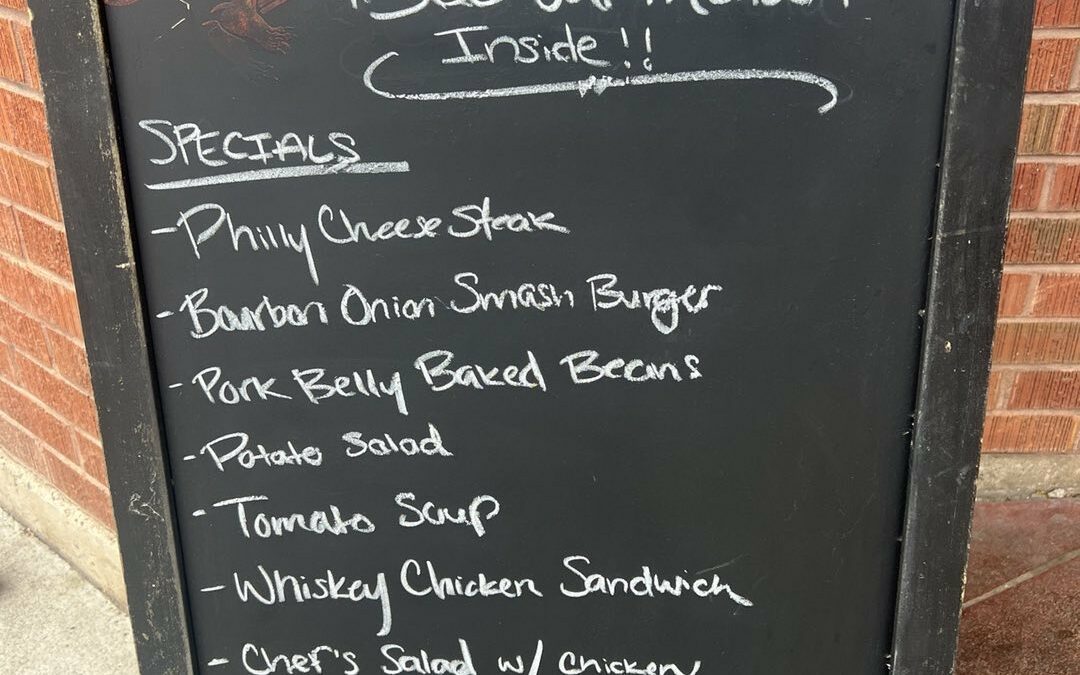 Inside!!
SPECIALS
- Philly Cheese Steak
- Bourbon Onion Smash Burger
- Pork Belly Baked Beans
- Potato Salad
- Tomato Soup
- Whiskey Chicken Sandwich
- Chef's Salad w/ Chicken